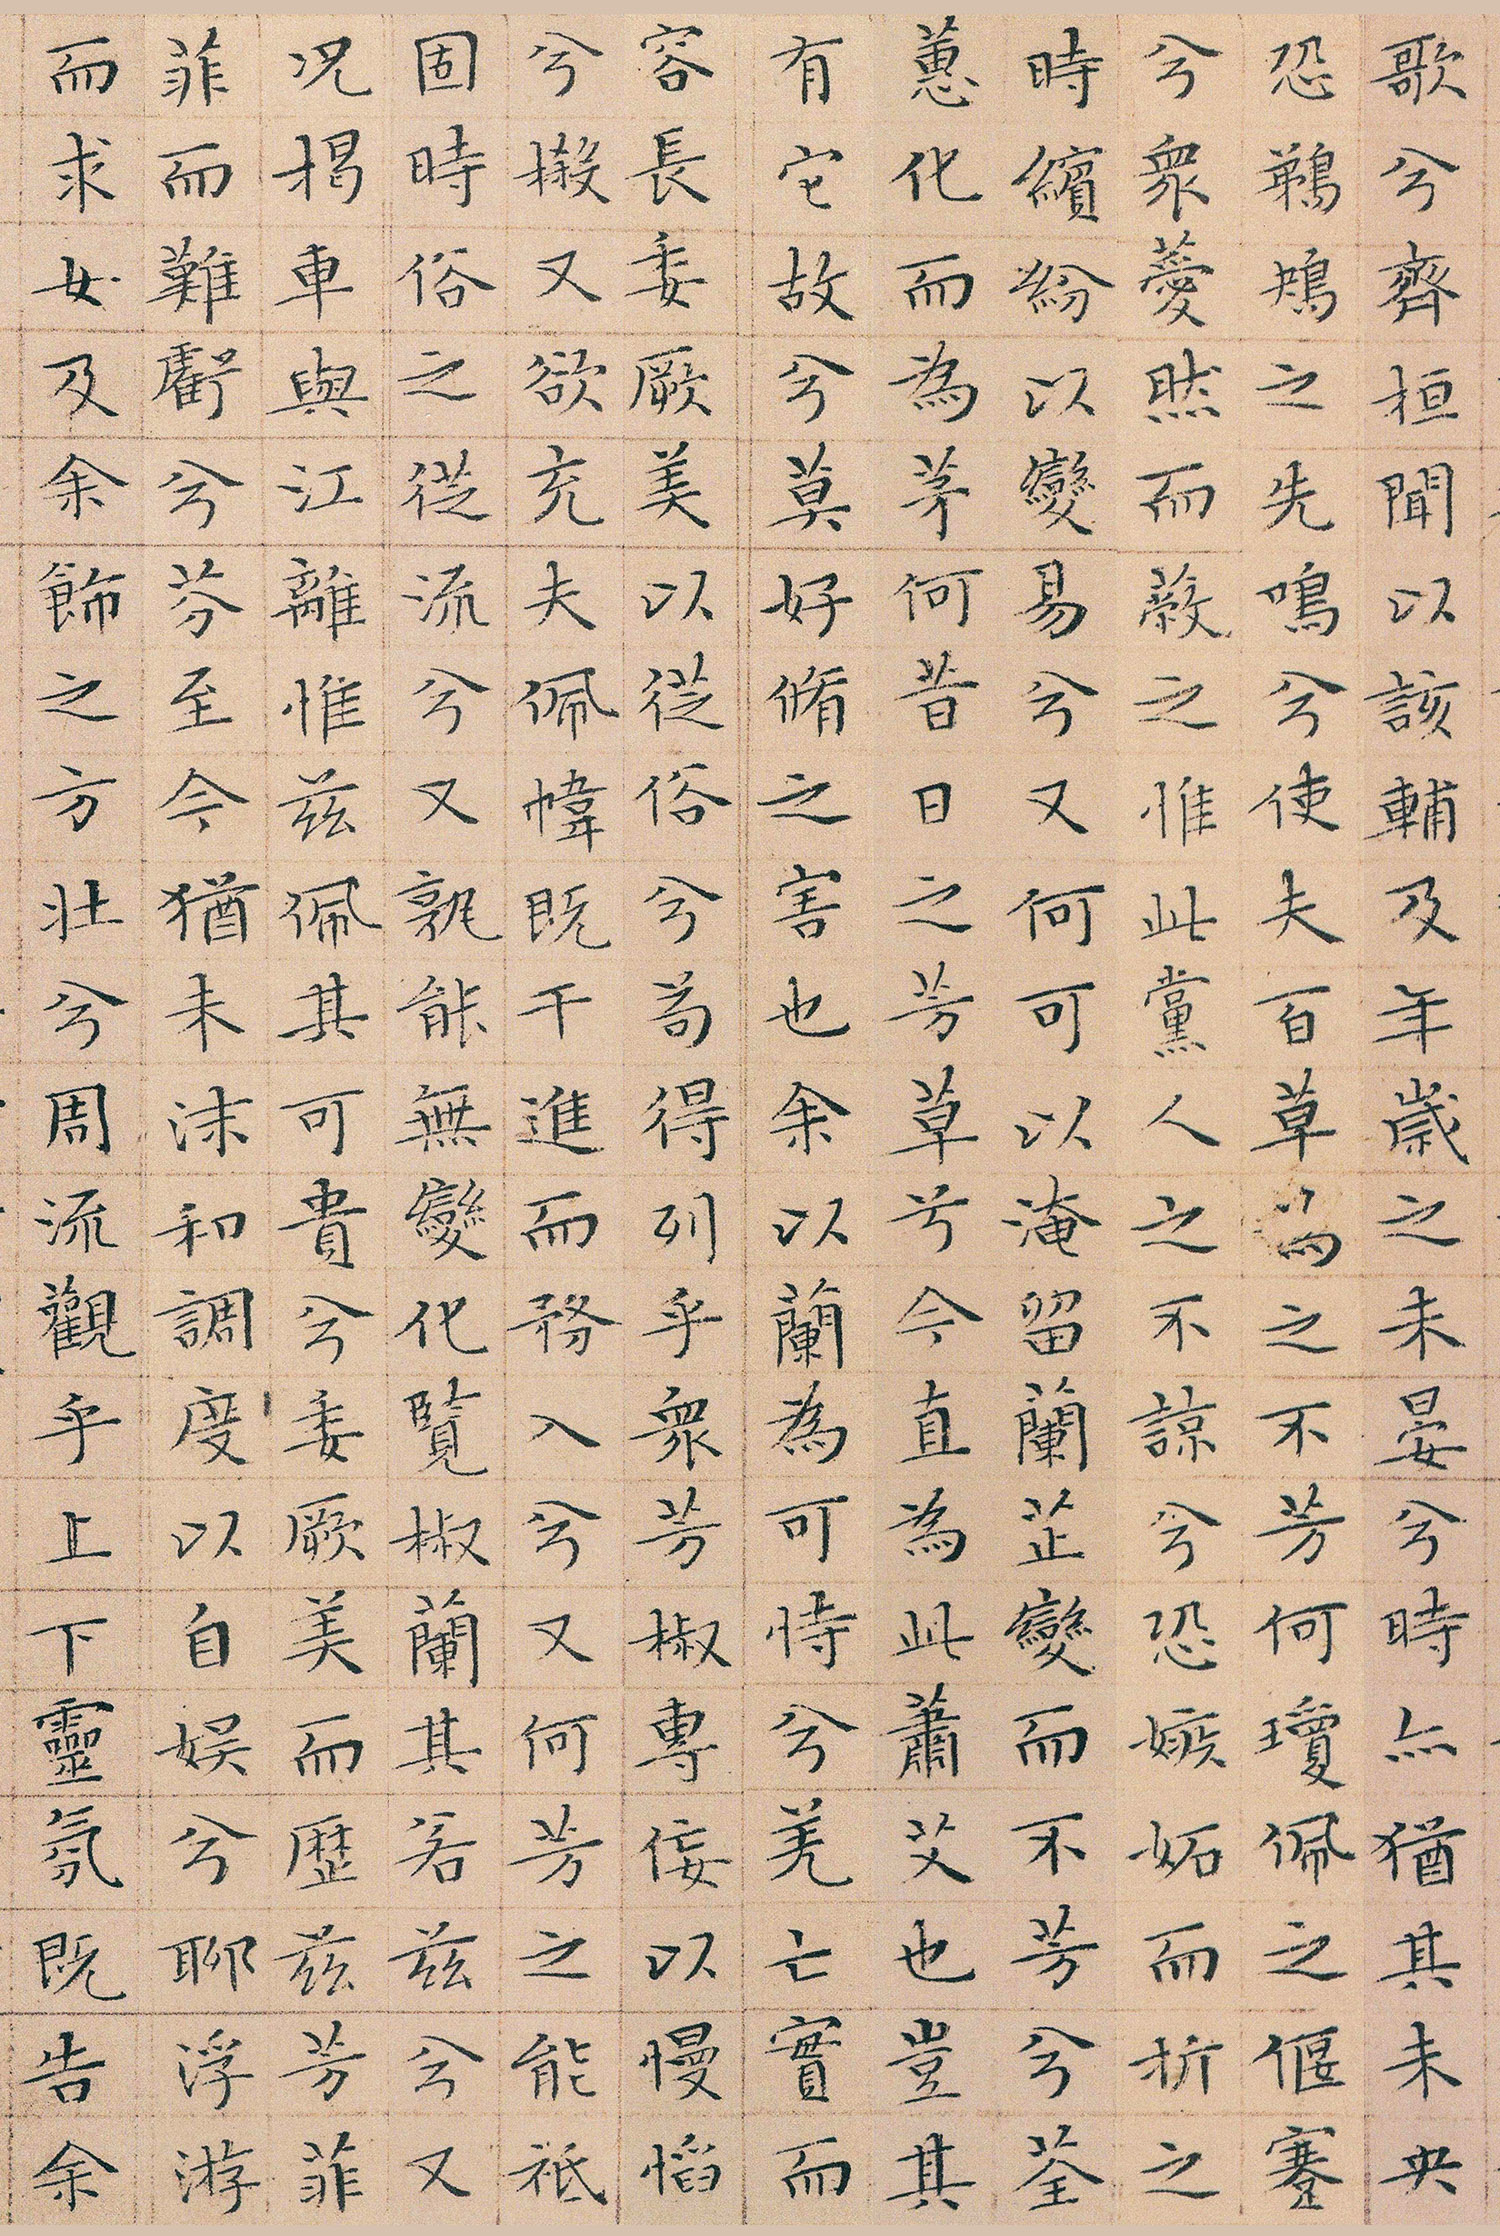 歌兮齊桓聞以該輔及年歲之未晏兮時亦猶其未央
恐鵜鴂之先鳴兮使夫百草為之不芳何瓊佩之偃蹇
兮衆薆然而蔽之惟此黨人之不諒兮恐嫉妬而折之
時繽紛以變易兮又何可以淹留蘭芷變而不芳兮荃
蕙化而為茅何昔日之芳草兮今直為此蕭艾也豈其
有它故兮莫好脩之害也余以蘭為可恃兮羌亡實而
容長委厥美以從俗兮苟得列乎衆芳椒專佞以慢慆
兮樧又欲充夫佩幃既干進而務入兮又何芳之能祗
固時俗之從流兮又孰能無變化覽椒蘭其若茲兮又
況揭車與江離惟茲佩其可貴兮委厥美而歷茲芳菲
菲而難虧兮芬至今猶未沬和調度以自娛兮聊浮游
而求女及余飾之方壯兮周流觀乎上下靈氛既告余